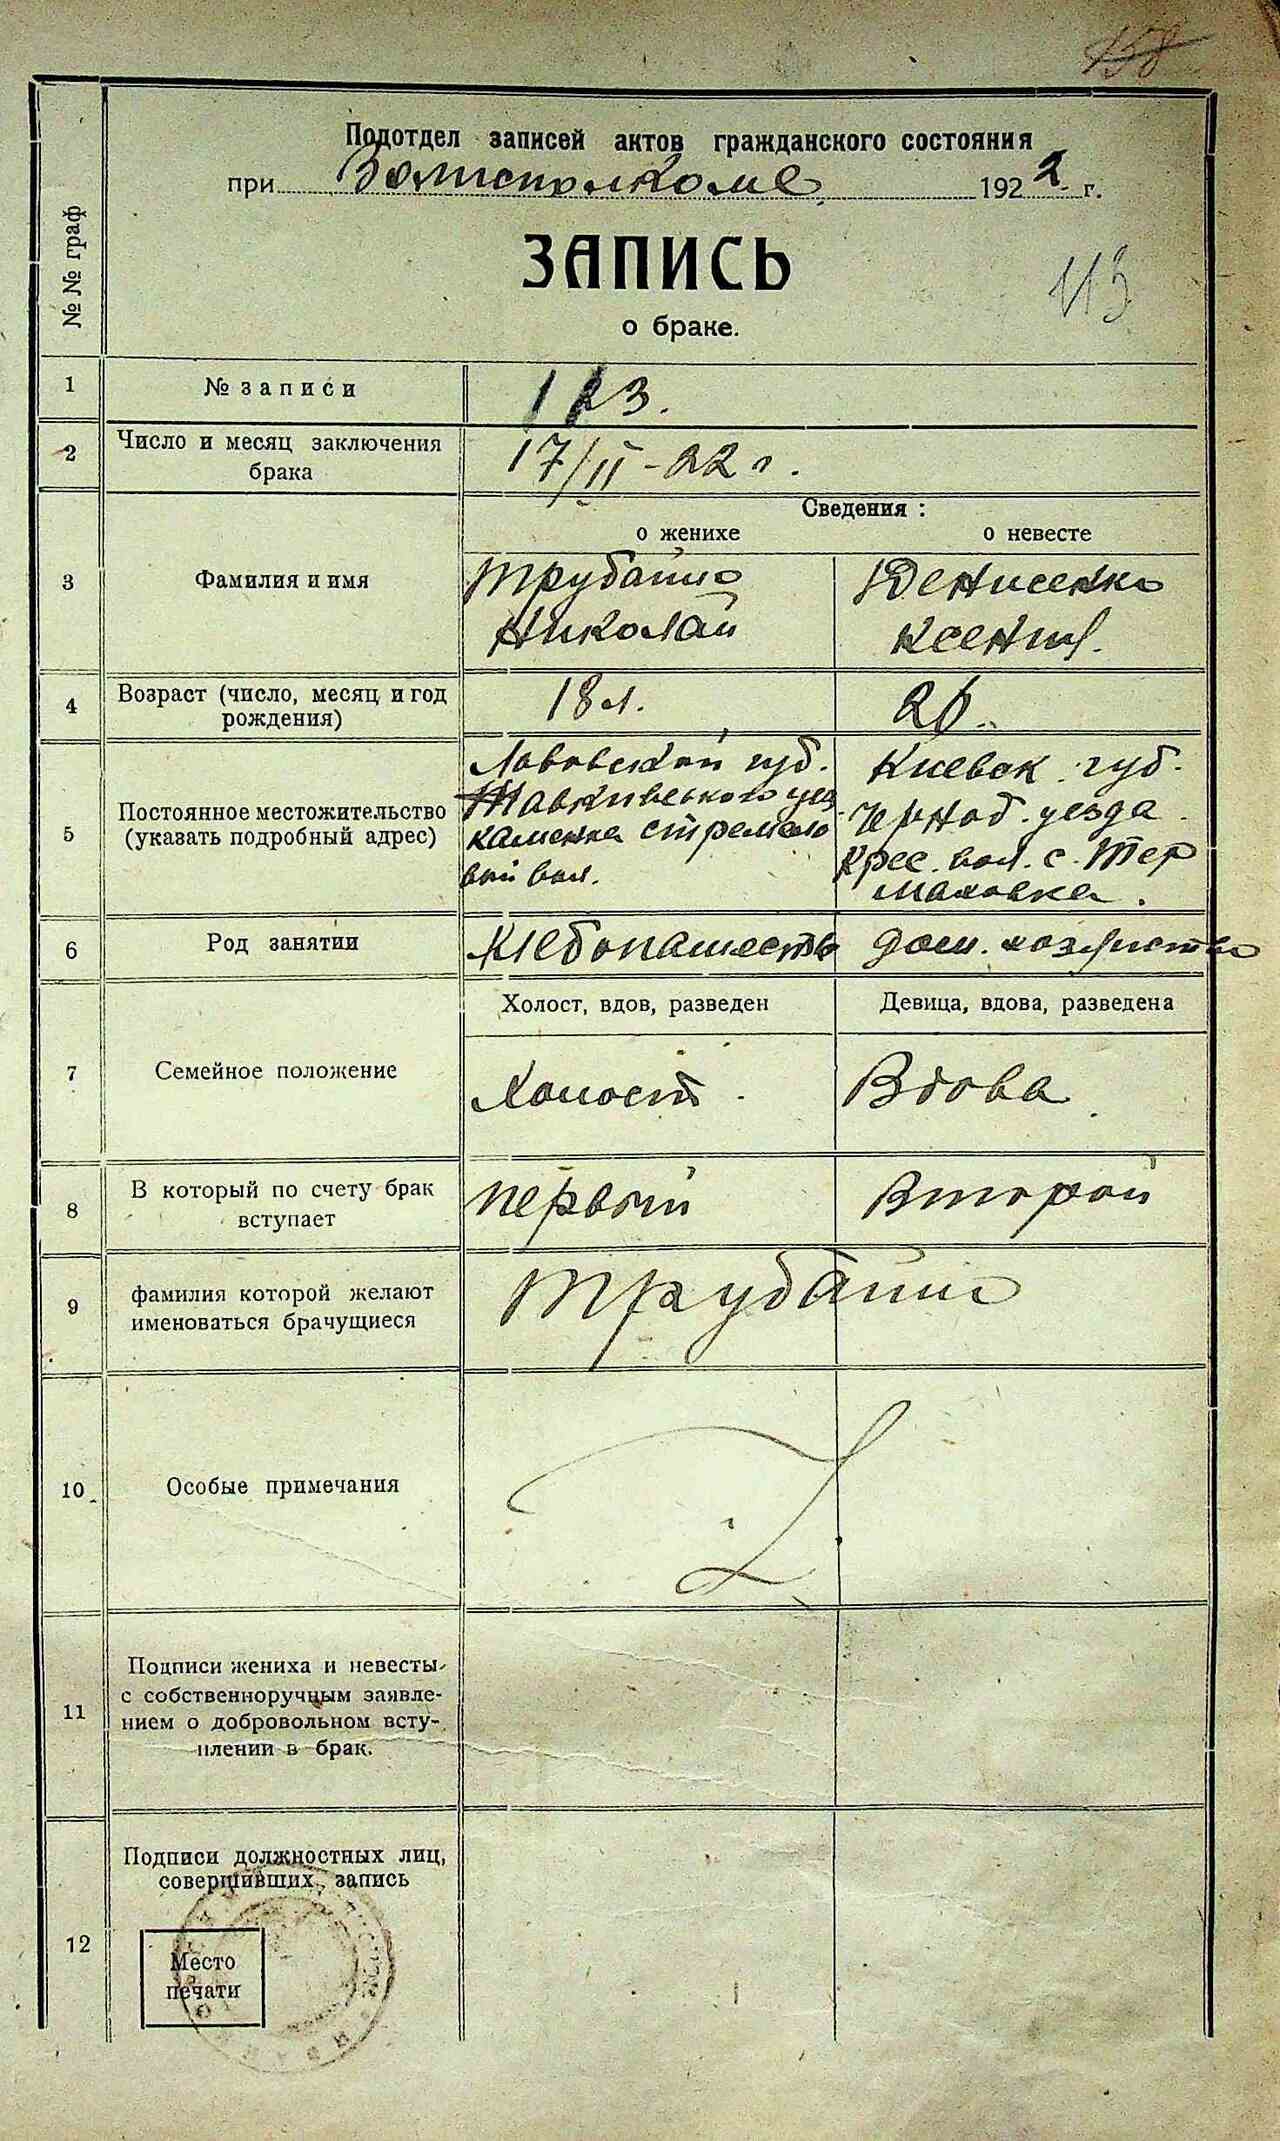 158
Подотдел записей актов гражданского состояния
при Волисполкоме 1922 г.
№№ граф
ЗАПИСЬ
113
о браке.
1 № записи 123.
2 Число и месяц заключения брака 17/II-22 г.
Сведения:
о женихе о невесте
3 Фамилия и имя
Денисенко
Николай Ксения.
4 Возраст (число, месяц и год рождения) 18 л. 26.
5 Постоянное местожительство (указать подробный адрес)
Львовской губ. Киевск. губ.
Черноб. уезда
каменка
вол. с. Тер
маховка.
6 Род занятии Хлебопашество дом. хозяйство
Холост, вдов, разведен Девица, вдова, разведена
7 Семейное положение Холост Вдова
8 В который по счету брак вступает первый Второй
9 фамилия которой желают именоваться брачущиеся
10 Особые примечания
11 Подписи жениха и невесты с собственноручным заявле-
нием о добровольном всту-
плении в брак.
12 Подписи должностных лиц,
совершивших запись
Место
печати